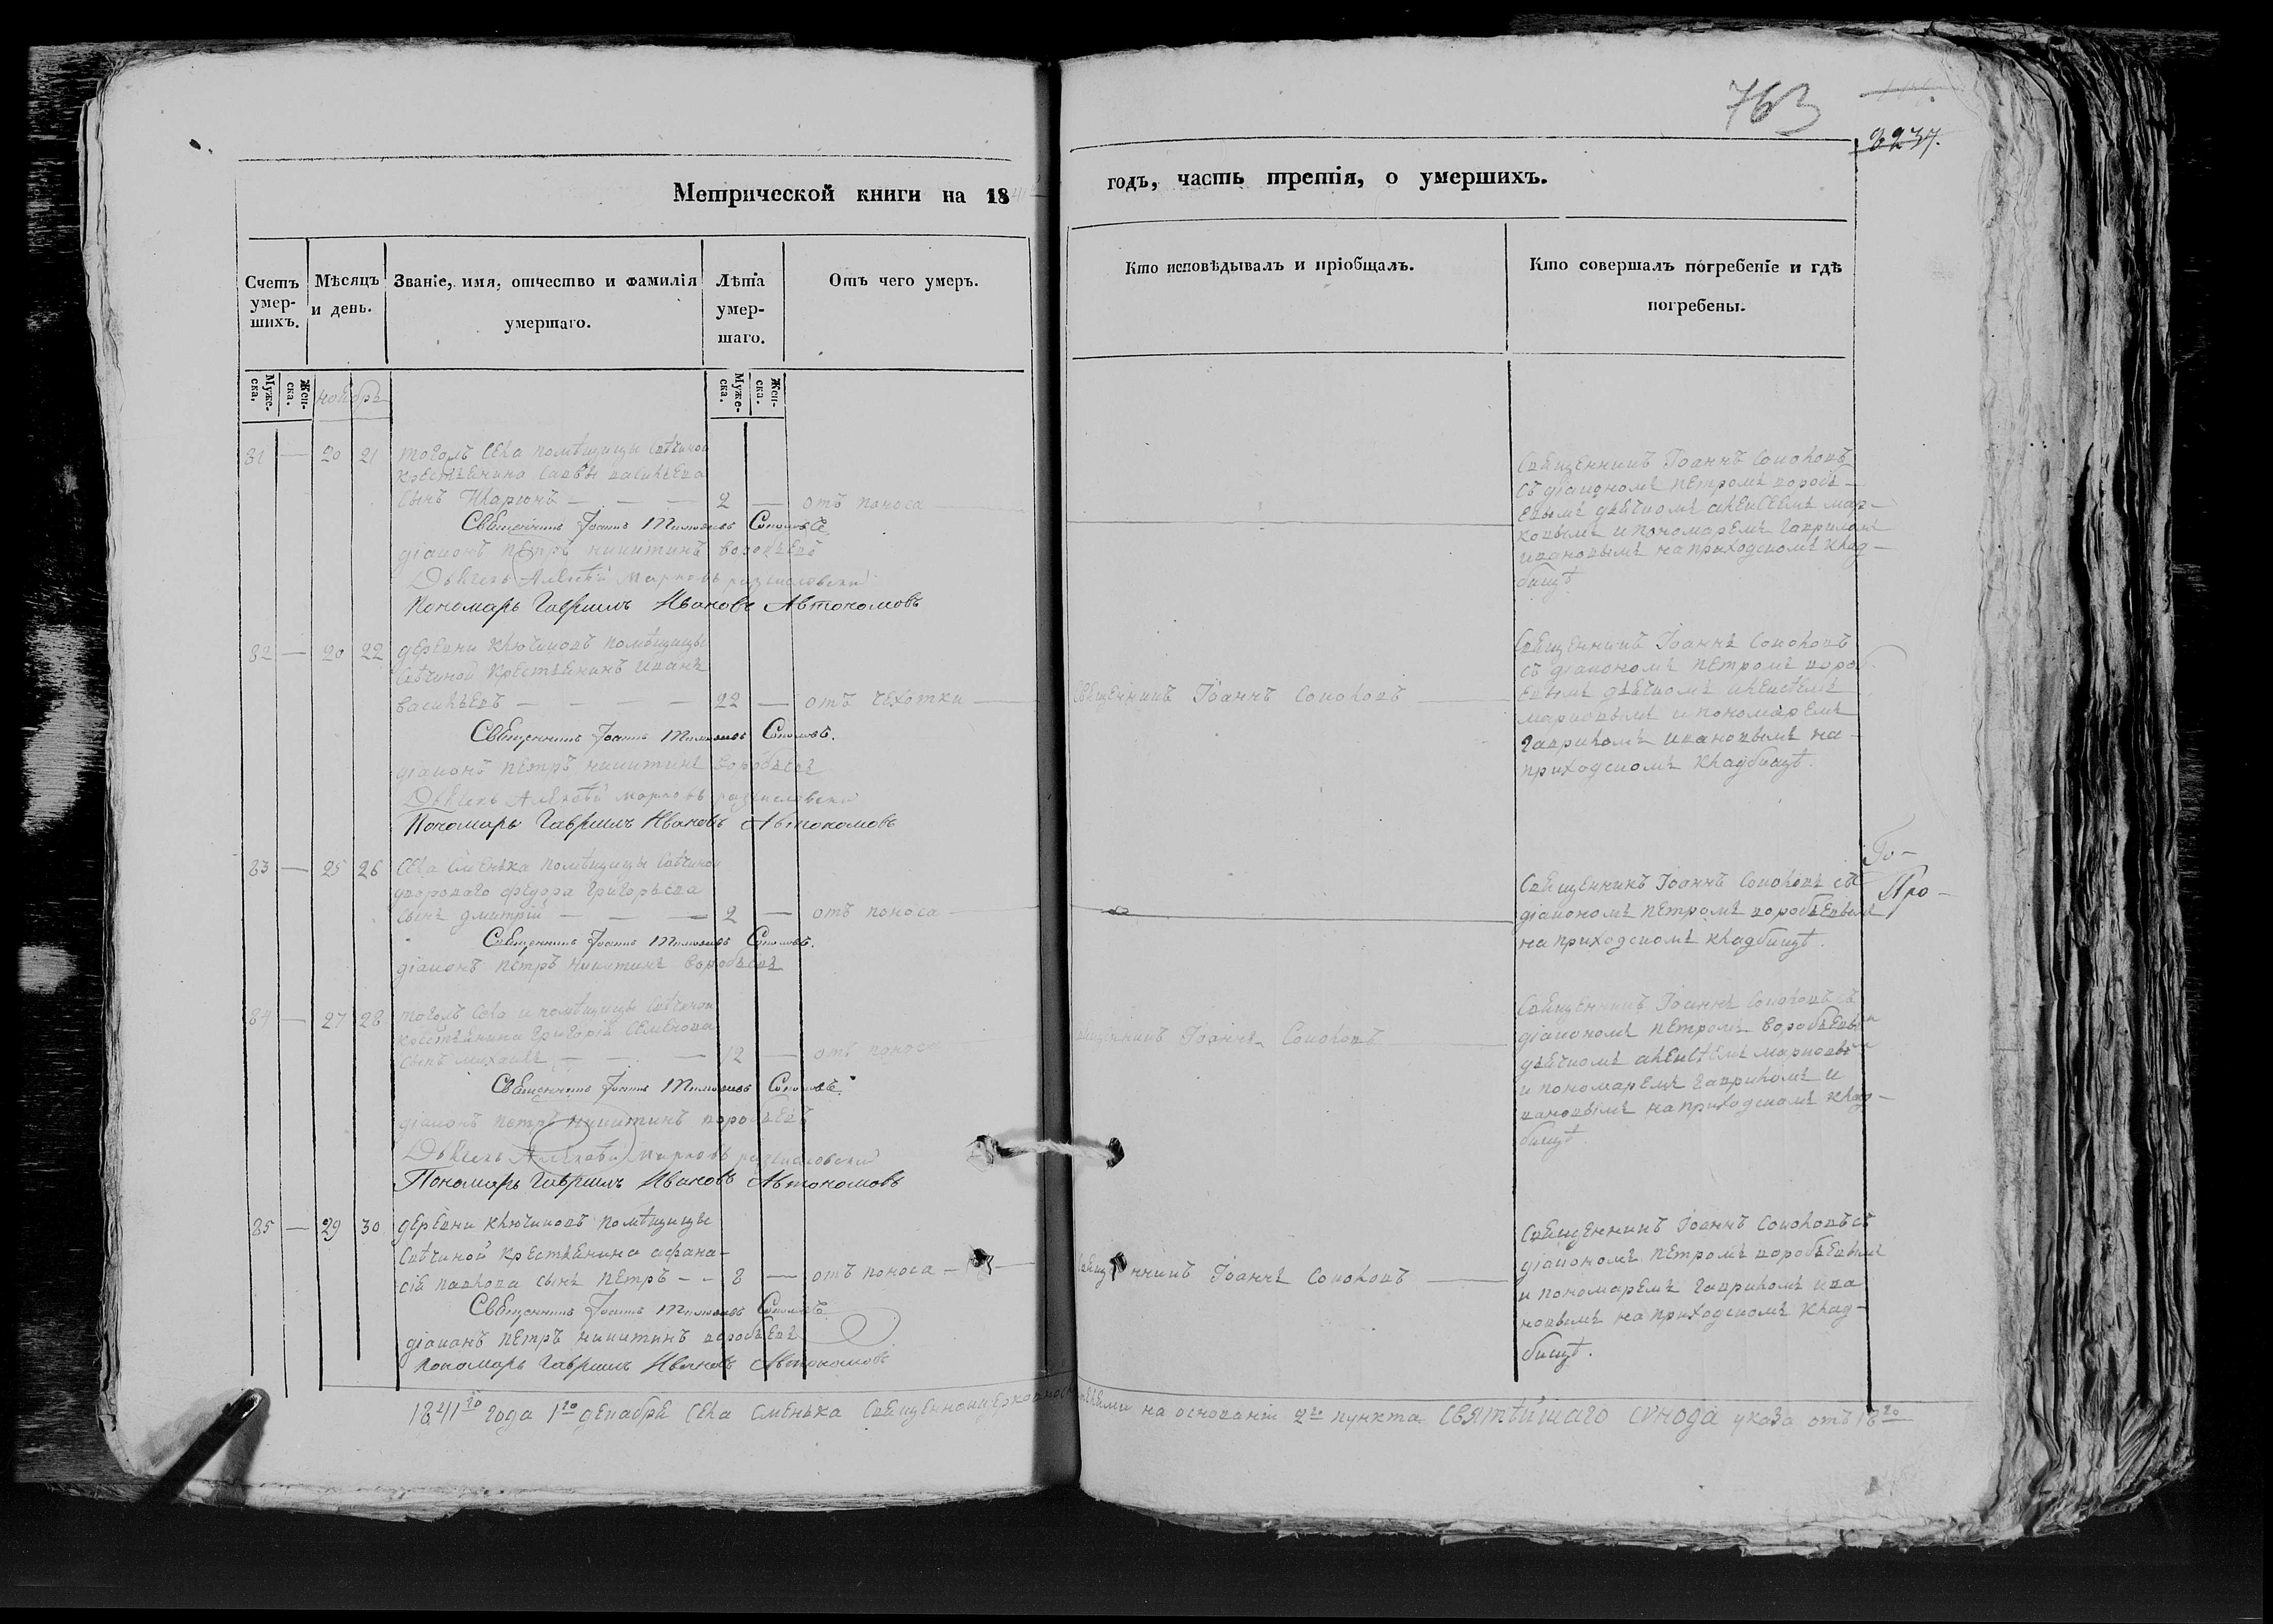 763
3237.
Метрической книги на 1841
годъ, часть третія, о умершихъ.
Счетъ умер-шихъ.
Мѣсяцъ и день.
Званіе, имя, отчество и фамилія умершаго.
Лѣта умер-шаго.
Отъ чего умеръ.
Кто исповѣдывалъ и пріобщалъ.
Кто совершалъ погребеніе и гдѣ погребены.
Муже-ска.
Жен-ска.
ноябрь
Муже-ска.
Жен-ска.
81 — 20 21 тогожъ села помѣщицы
крестьянина Саввы васильева
сынъ Иларіонъ — — — 2 — отъ поноса
Священникъ Іоаннъ Соколовъ
діаконъ петръ никитинъ воробьевъ
Дьячекъ Алексѣй Марковъ
Пономарь Гавріилъ Ивановъ Автономовъ
Священникъ Іоаннъ Соколовъ
съ діакономъ петромъ воробь-
евымъ дьячкомъ алексѣемъ мар-
ковымъ и пономаремъ гавриломъ
ивановымъ на приходскомъ клад-
бищѣ
82 — 20 22 деревни ключиковъ помѣщицы
крестьянинъ иванъ
васильевъ — — — — 22 — отъ чехотки
Священникъ Іоаннъ Соколовъ.
діаконъ петръ никитинъ воробьевъ
Дьячекъ Алексѣй марковъ
Пономарь Гавріилъ Ивановъ Автономовъ
Священникъ Іоаннъ Соколовъ
Священникъ Іоаннъ Соколовъ
съ діакономъ петромъ вороб
евымъ дьячкомъ алексѣемъ
марковымъ и пономаремъ
гавриломъ ивановымъ на
приходскомъ кладбищѣ.
83 — 25 26 села Сменька помѣщицы
двороваго федора григорьева
сынъ дмитрій — — — 2 — отъ поноса
Священникъ Іоаннъ Соколовъ.
діаконъ петръ никитинъ воробьевъ
Священникъ Іоаннъ Соколовъ съ
діакономъ петромъ воробьевымъ
на приходскомъ кладбищѣ.
84 — 27 28 тогожъ села и помѣщицы
крестьянина григорія семенова
сынъ михаилъ — — — 12 — отъ поноса
Священникъ Іоаннъ Соколовъ.
діаконъ петръ никитинъ воробьевъ
Дьячекъ Алексѣй Марковъ
Пономарь Гавріилъ Ивановъ Автономовъ
Священникъ Іоаннъ Соколовъ
Священникъ Іоаннъ Соколовъ съ
діакономъ петромъ воробьевым
дьячкомъ алексѣемъ марковым
и пономаремъ гавриломъ и
вановымъ на приходскомъ клад-
бищѣ.
85 — 29 30 деревни ключиковъ помѣщицы
крестьянина афана-
сія павлова сынъ петръ — — 8 — отъ поноса
Священникъ Іоаннъ Соколовъ
діаконъ петръ никитинъ воробьевъ
Пономарь Гавріилъ Ивановъ Автономовъ
Священникъ Іоаннъ Соколовъ
Священникъ Іоаннъ Соколовъ съ
діакономъ петромъ воробьевымъ
и пономаремъ гавриломъ ива
новымъ на приходскомъ клад-
бищѣ.
1841го года 1го декабря села Сменька на основаніи 2го пункта святѣйшаго сунода указа отъ 18го